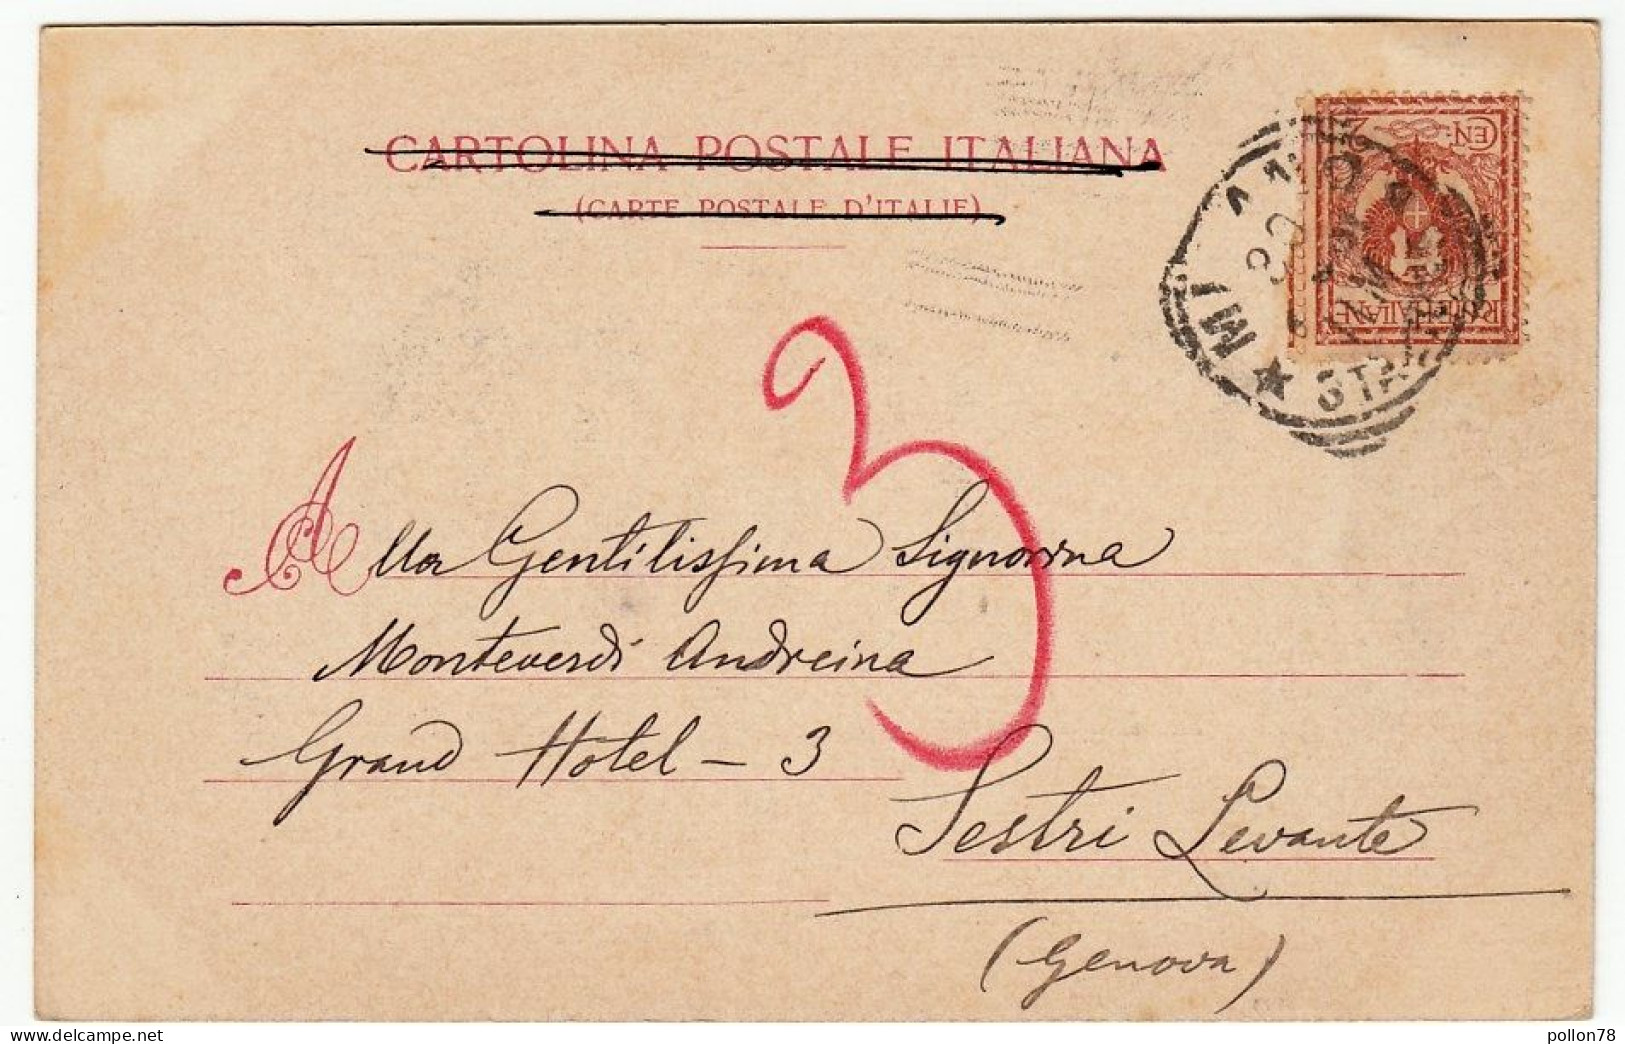 CARTOLINA POSTALE ITALIANA
(CARTE POSTALE D'ITALIE)
CEN. 2
POSTE ITALIANE
MILANO
STA
3
Alla Gentilissima Signorina
Monteverdi Andreina
Grand Hotel - 3
Sestri Levante
(Genova)
www.delcampe.net
pollon78